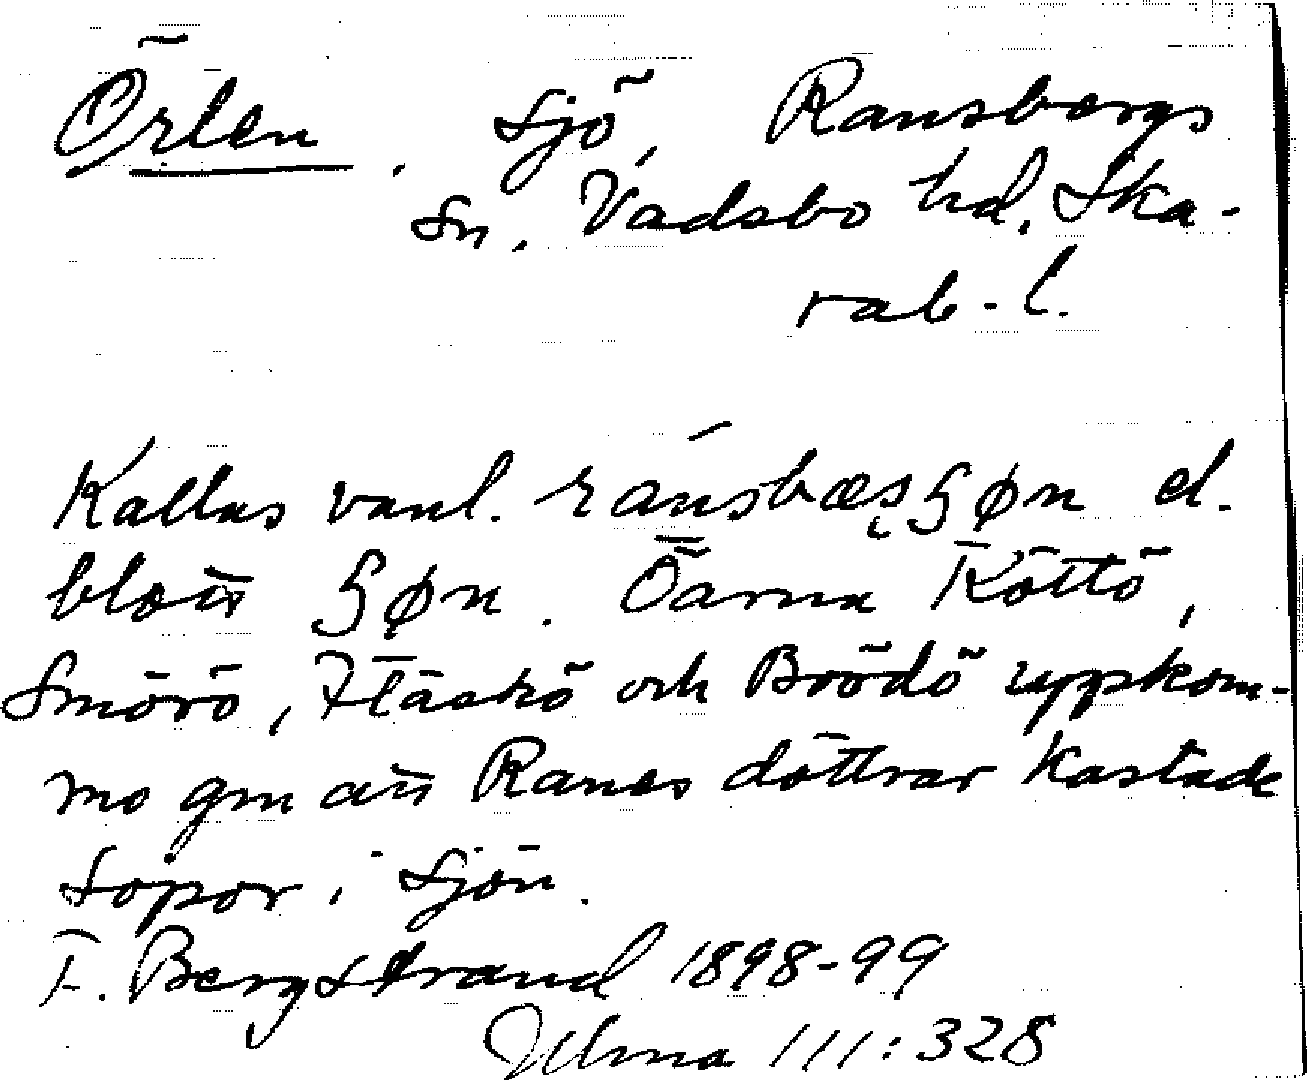 Örlen. Sjö, Ransbergs
sn. Vadsbo hd, Ska-
rab-l.
Kallas vanl. el.
Öarna Köttö,
Smörö, Fläskö och Brödö uppkom-
mo gm att Ranes döttrar kastade
sopor i sjön.
F. Bergstrand 1898-99
Ulma 111:328